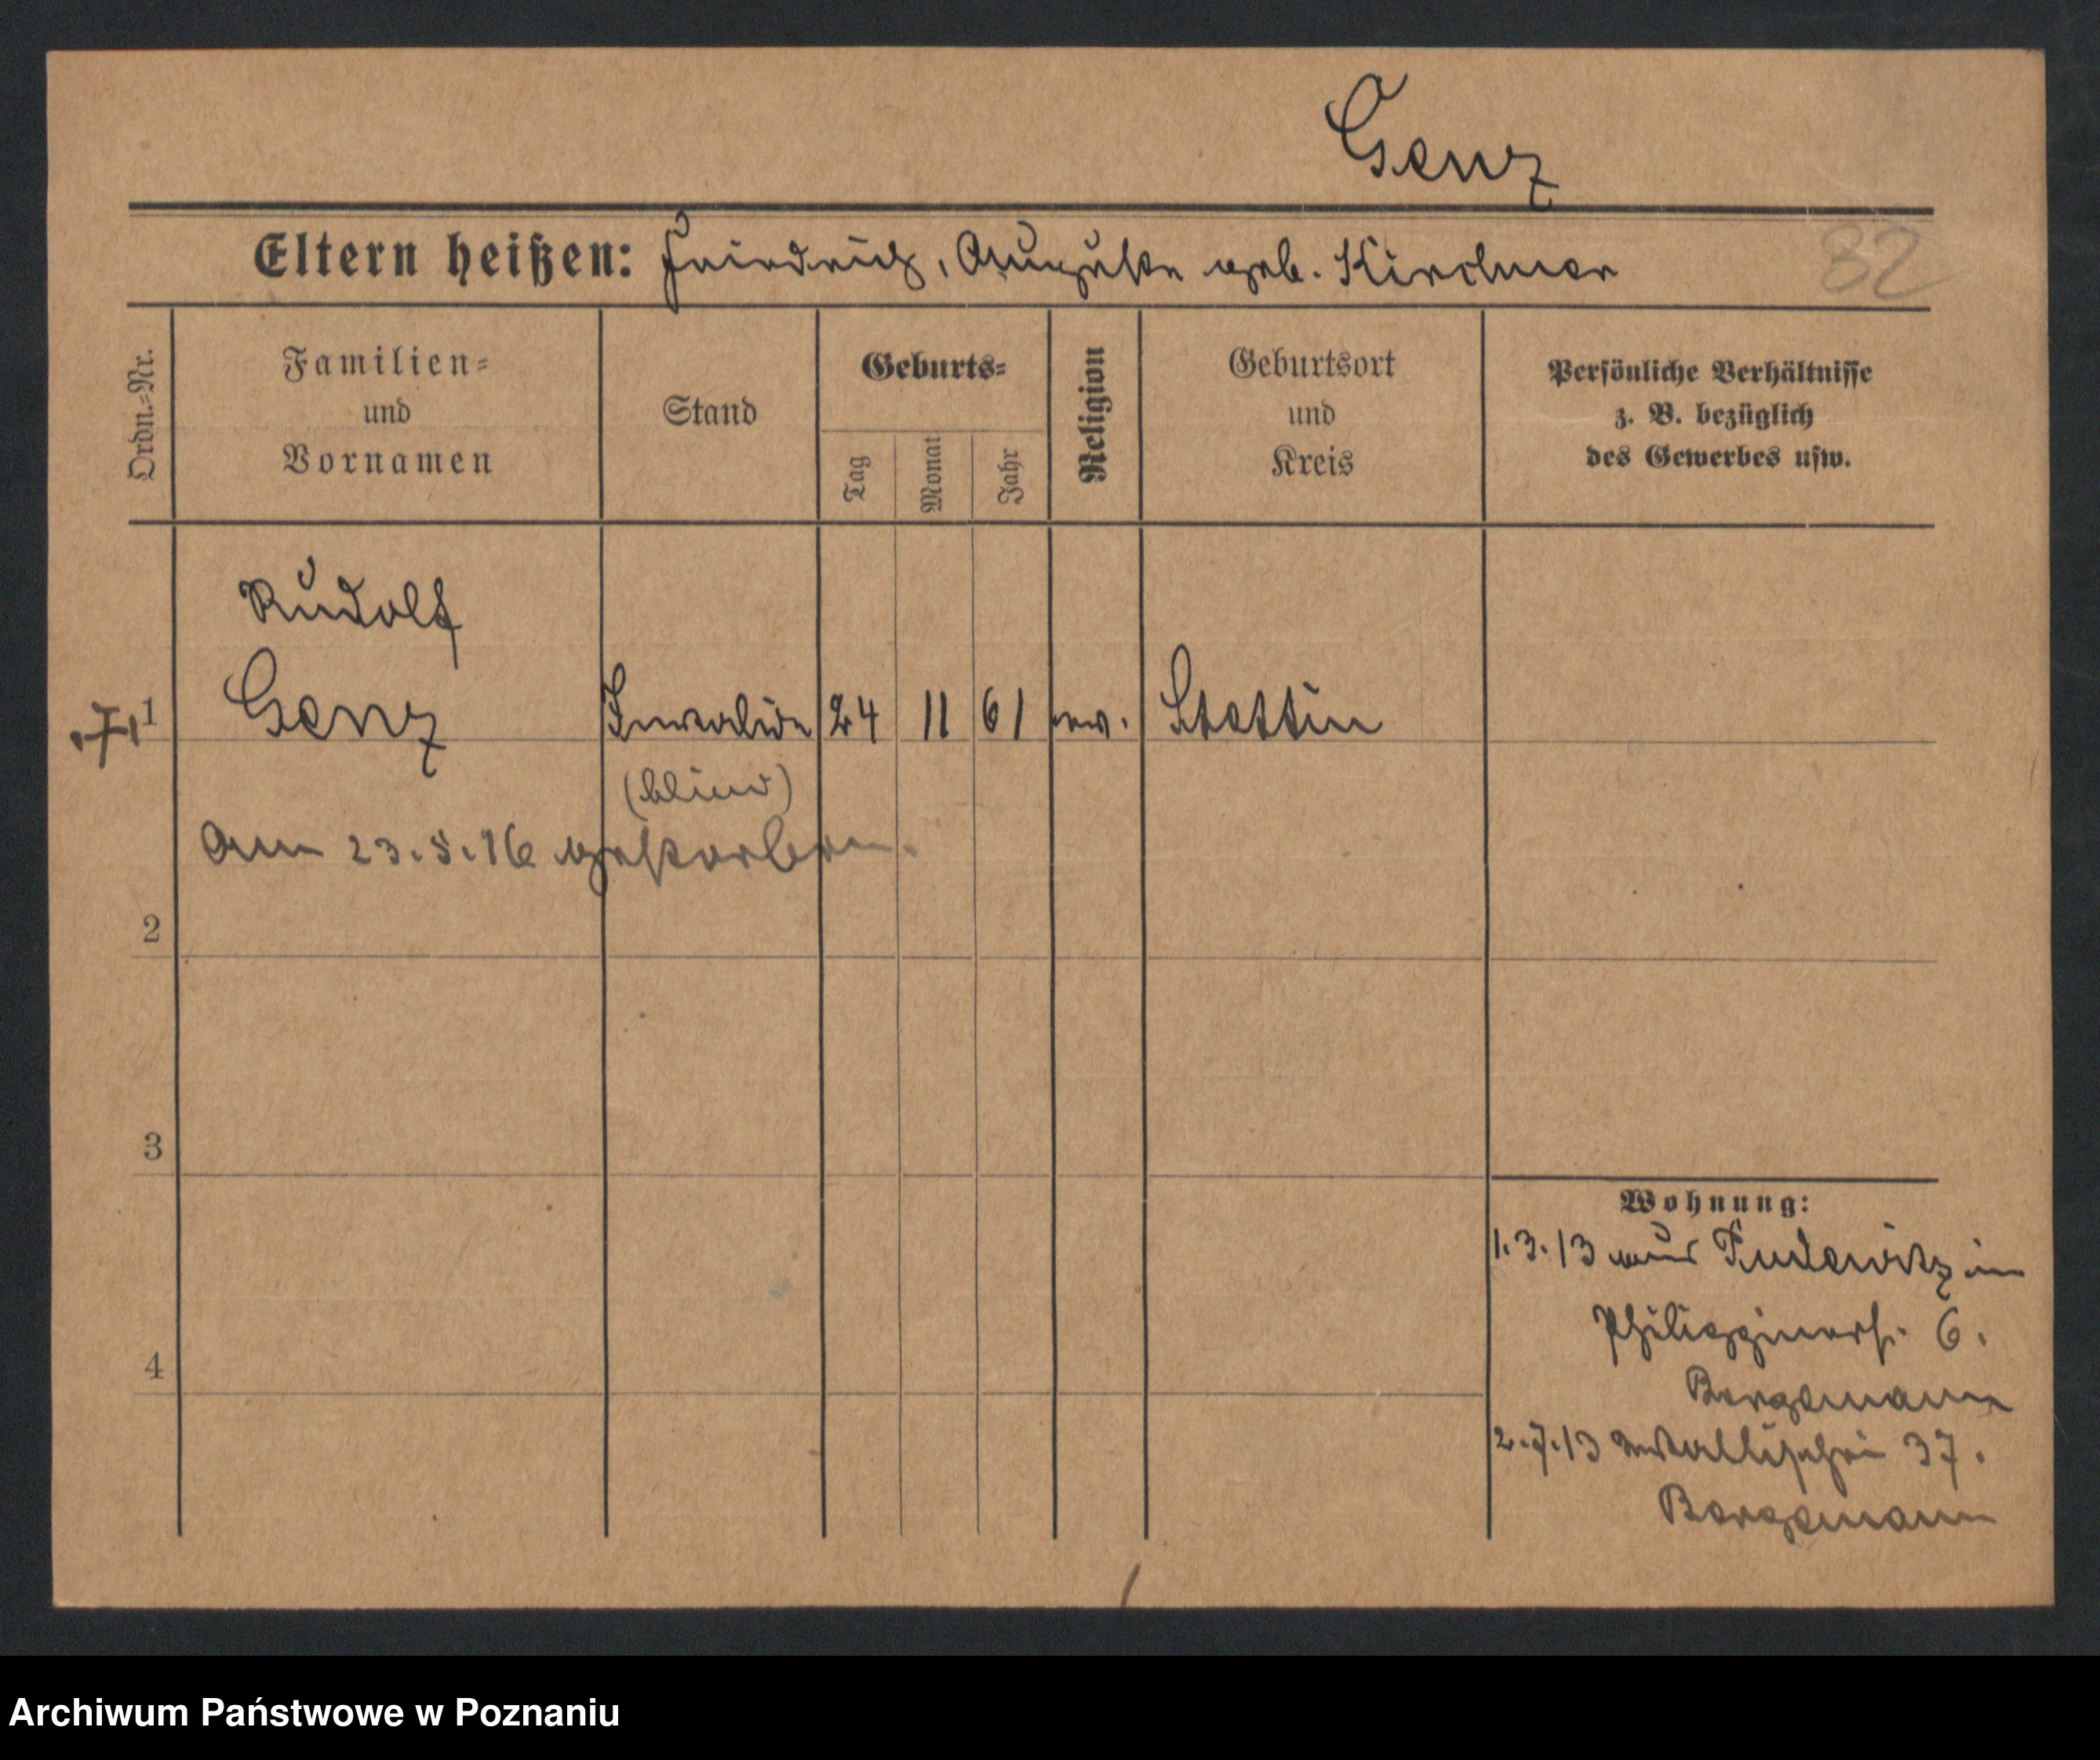 Genz
Eltern heißen: Friedrich, Auguste geb. Kirchner
32
Ordn.-Nr.
Familien- und Vornamen
Stand
Geburts-
Tag
Monat
Jahr
Religion
Geburtsort und Kreis
Persönliche Verhältnisse
z. B. bezüglich
des Gewerbes usw.
Rudolf
1 Genz Invalide 24 11 61 ev. Stettin
(blind)
Am 23.5.16 gestorben.
2
3
4
Wohnung:
1.3.13 aus Pudewitz in
Philippinerst. 6.
Bergemann
2.7.13 Wallischei 37.
Bergemann
Archiwum Państwowe w Poznaniu